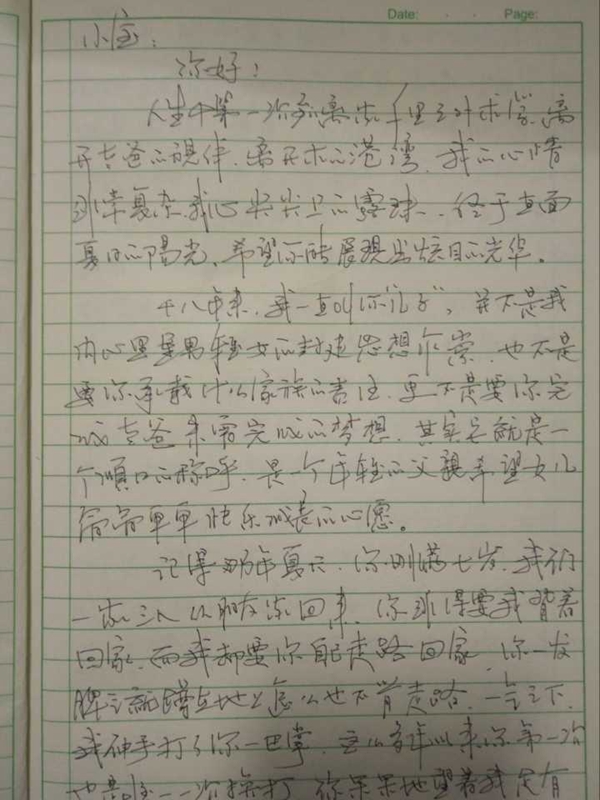 Date: Page:
小宝:
你好!
人生中第一次你离家千里之外求学,离
开老爸的视线,离开木的港湾,我的心情
非常复杂,我心尖尖上的露珠,终于直面
夏日的阳光,希望你能展现出炫目的光华。
十八年来,我一直叫你"儿子",并不是我
内心里重男轻女的封建思想作祟,也不是
要你承载什么家族的责任,更不是要你完
成老爸未曾完成的梦想,其实它就是一
个顺口的称呼,是一个年轻的父亲希望女儿
简简单单快乐成长的心愿。
记得那年夏天,你刚满七岁,我们
一家三人从朋友家回来,你非得要我背着
回家,而我却要你自己走路回家,你一发
脾气就蹲在地上怎么也不肯走路,一气之下,
我伸手打了你一巴掌,这么多年以来你第一次
也是唯一一次挨打,你呆呆地望着我足有